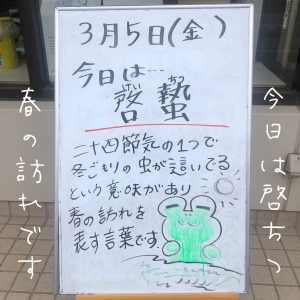 3月5日(金)
今日は…
啓蟄
二十四節気の1つで
冬ごもりの虫が這いでる
という意味があり
春の訪れを
表す言葉です。
今日は啓ちつ
春の訪れです